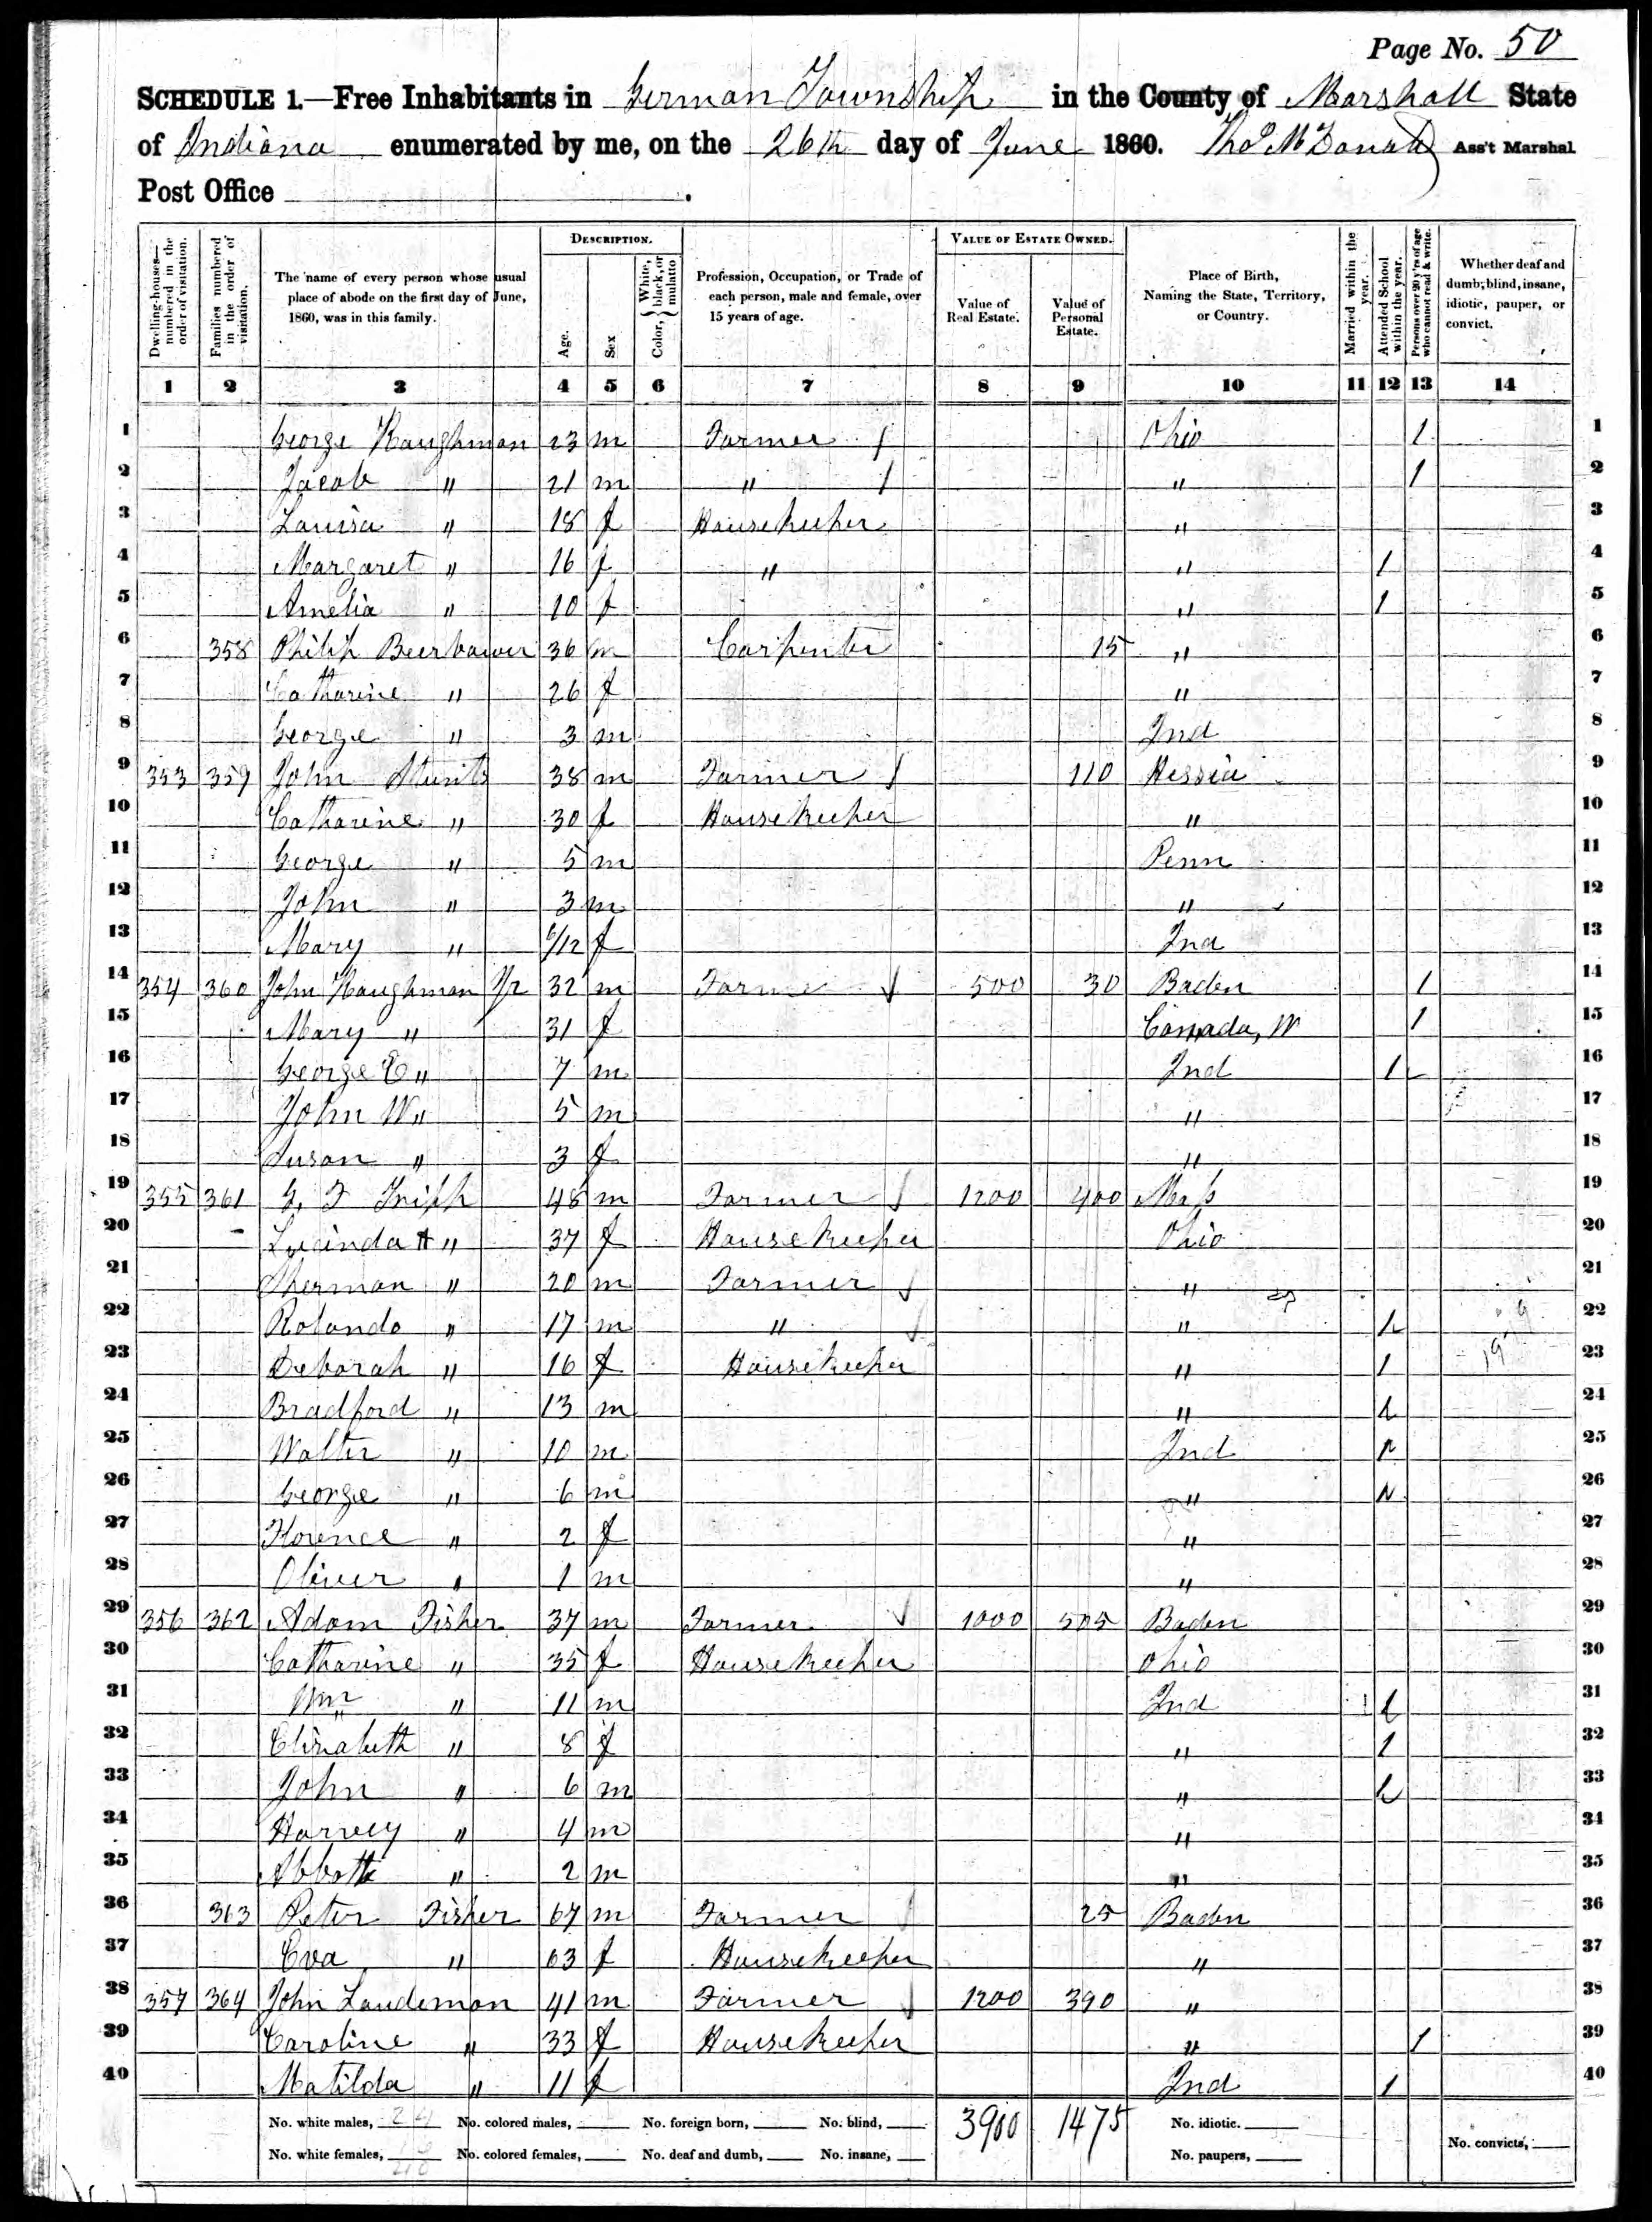 Page No. 50
SCHEDULE 1.—Free Inhabitants in German Township in the County of Marshall State
of Indiana enumerated by me, on the 26th day of June 1860. Thos McDonald Ass't Marshal
Post Office .
Dwelling-houses—numbered in the order of visitation. Families numbered in the order of visitation. The name of every person whose usual place of abode on the first day of June, 1860, was in this family. DESCRIPTION. Age. Sex Color, White, black, or mulatto Profession, Occupation, or Trade of each person, male and female, over 15 years of age. VALUE OF ESTATE OWNED. Value of Real Estate. Value of Personal Estate. Place of Birth, Naming the State, Territory, or Country. Married within the year. Attended School within the year. Persons over 20 y'rs of age who cannot read & write. Whether deaf and dumb, blind, insane, idiotic, pauper, or convict.
1 2 3 4 5 6 7 8 9 10 11 12 13 14
1 George Haughman 23 m Farmer / Ohio 1 1
2 Jacob " 21 m " / " 1 2
3 Louisa " 18 f Housekeeper " 3
4 Margaret " 16 f " " 1 4
5 Amelia " 10 f " 1 5
6 358 Philip Beerbower 36 m Carpenter 15 " 6
7 Catharine " 26 f " 7
8 George " 3 m Ind 8
9 353 359 John Stunts 38 m Farmer / 110 Hessia 9
10 Catharine " 30 f Housekeeper " 10
11 George " 5 m Penn 11
12 John " 3 m " 12
13 Mary " 6/12 f Ind 13
14 354 360 John Haughman Jr 32 m Farmer / 500 30 Baden 1 14
15 Mary " 31 f Canada, W 1 15
16 George E " 7 m Ind 1 16
17 John W " 5 m " 17
18 Susan " 3 f " 18
19 355 361 G. F Tripp 48 m Farmer / 1200 400 Mass 19
20 Lucinda H " 37 f Housekeeper Ohio 20
21 Sherman " 20 m Farmer / " 21
22 Rolando " 17 m " / " 1 22
23 Deborah " 16 f Housekeeper " 1 23
24 Bradford " 13 m " 1 24
25 Walter " 10 m Ind 1 25
26 George " 6 m " 1 26
27 Florence " 2 f " 27
28 Oliver " 1 m " 28
29 356 362 Adam Fisher 37 m Farmer / 1000 505 Baden 29
30 Catharine " 35 f Housekeeper Ohio 30
31 Wm " 11 m Ind 1 31
32 Elizabeth " 8 f " 1 32
33 John " 6 m " 1 33
34 Harvey " 4 m " 34
35 Abbott " 2 m " 35
36 363 Peter Fisher 67 m Farmer / 25 Baden 36
37 Eva " 63 f Housekeeper " 37
38 357 364 John Laudeman 41 m Farmer / 1200 390 " 38
39 Caroline " 33 f Housekeeper " 1 39
40 Matilda " 11 f Ind 1 40
No. white males, 24 No. colored males, No. foreign born, No. blind, 3900 1475 No. idiotic.
No. white females, No. colored females, No. deaf and dumb, No. insane, No. paupers, No. convicts,